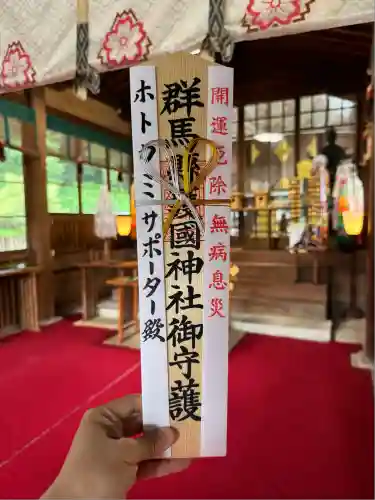 開運厄除無病息災
群馬縣護國神社御守護
ホトカミサポーター殿